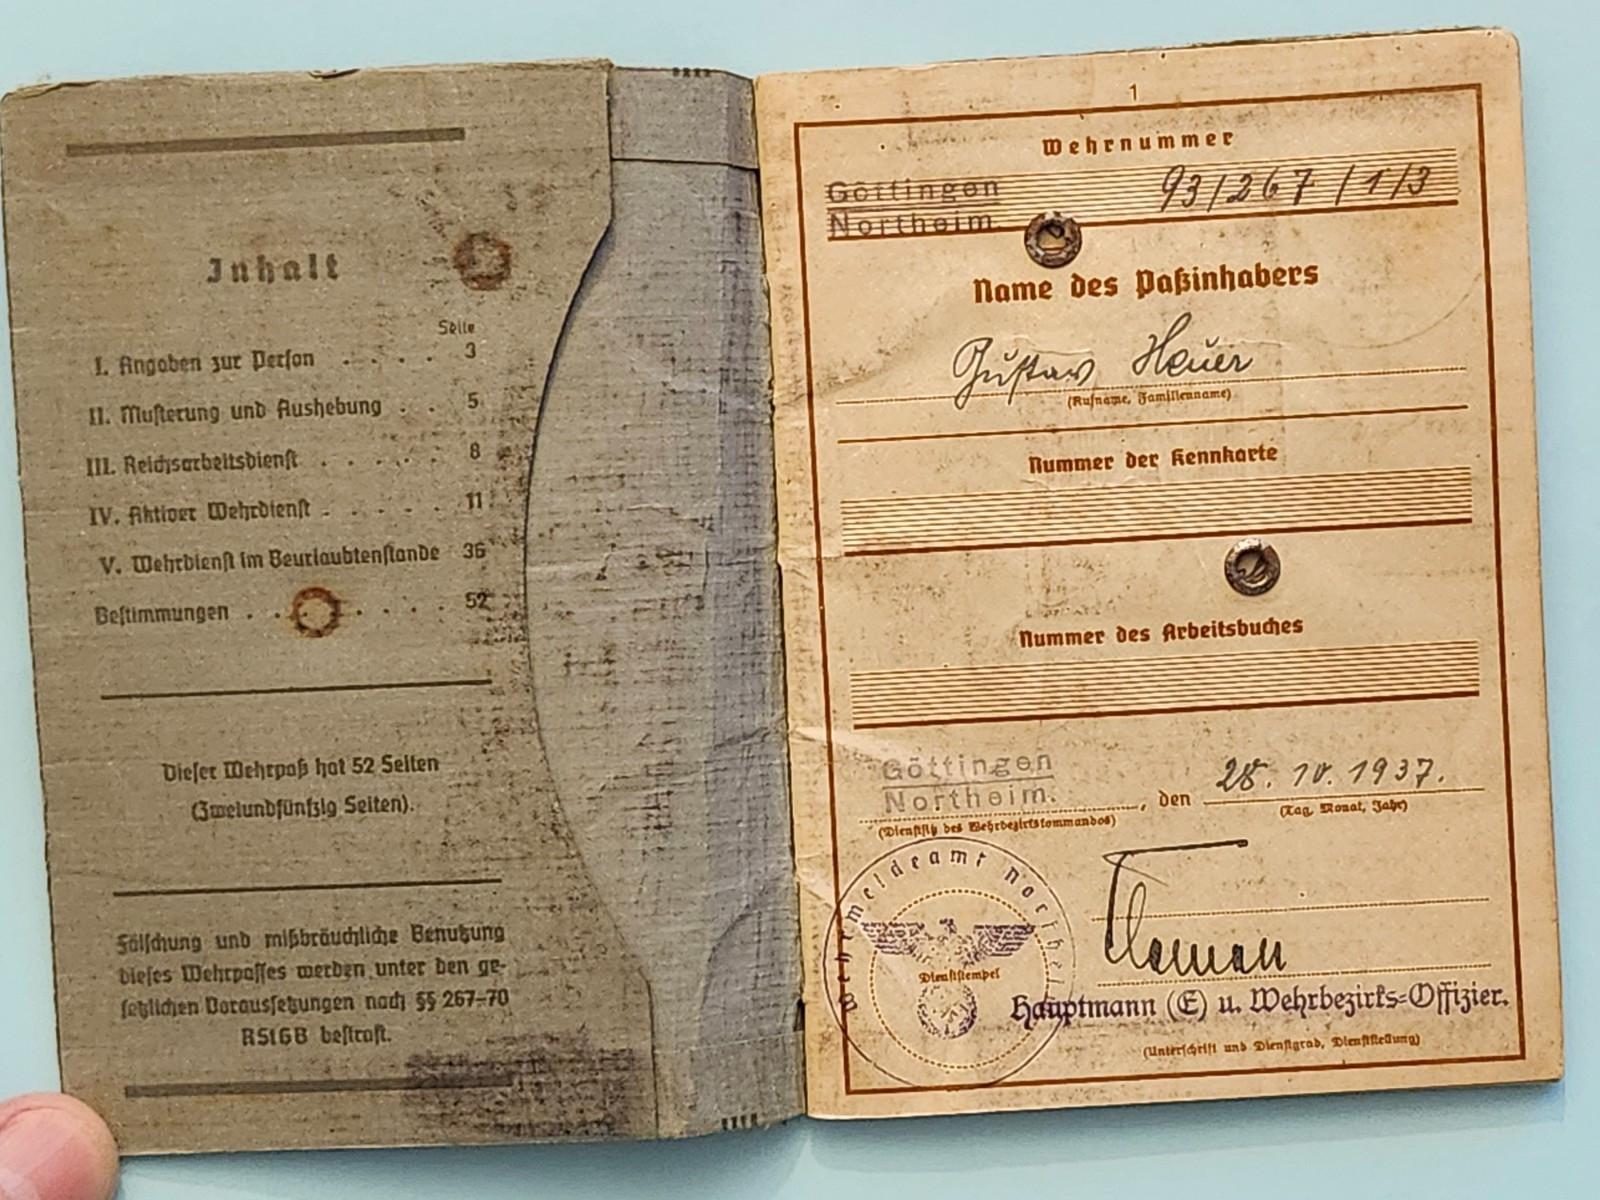 Inhalt
Seite
I. Angaben zur Person . . . . . 3
II. Musterung und Aushebung . . 5
III. Reichsarbeitsdienst . . . . . 8
IV. Aktiver Wehrdienst . . . . . 11
V. Wehrdienst im Beurlaubtenstande 36
Bestimmungen . . . . . . 52
Dieser Wehrpaß hat 52 Seiten
(Zweiundfünfzig Seiten).
Fälschung und mißbräuchliche Benutzung
dieses Wehrpasses werden unter den ge-
setzlichen Voraussetzungen nach §§ 267-70
RStGB bestraft.
1
Wehrnummer
Göttingen
Northeim.
93/267/1/3
Name des Paßinhabers
Gustav Heuer
(Rufname, Familienname)
Nummer der Kennkarte
Nummer des Arbeitsbuches
Göttingen
Northeim.
, den 28. 10. 1937.
(Dienstsitz des Wehrbezirkskommandos)
(Tag, Monat, Jahr)
Wehrmeldeamt Northeim
Dienststempel
Hauptmann (E) u. Wehrbezirks=Offizier.
(Unterschrift und Dienstgrad, Dienststellung)